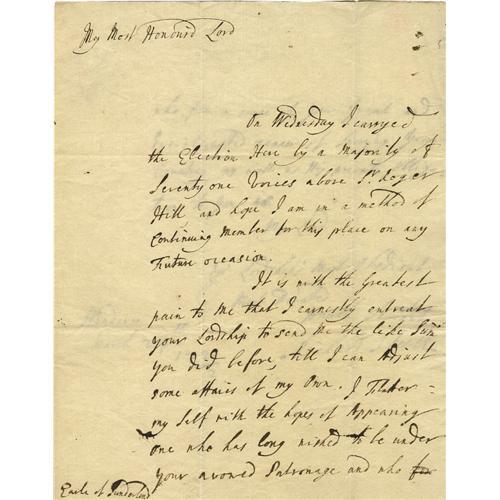 My Most Honour'd Lord
On Wednesday I carryed
the Election Here by a Majority of
Seventy one Voices above Sr. Roger
Hill and hope I am in a method of
Continuing Member for this place on any
Future occasion.
It is with the Greatest
pain to me that I earnestly entreat
your Lordship to send me the like Sum
you did before, till I can Adjust
some affairs of my Own. I Flatter
my self with the hopes of Appearing
one who has long wished to be under
your avowed Patronage and who for
Earle of Sunderland